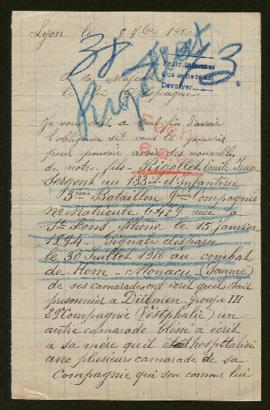 Lyon le 8 7bre 19
38
3.
Rigollet
Pedir informes
Devolver
Je vous écrit
l'obligence si vous le pouviez
pour pouvoir avoir des nouvelles
de notre fils Rigollet Emile Jean
Sergent au 133 ie d'Infanterie
3eme Bataillon 9eme Compagnie
Ne Matricule né a
St Fons Rhone le 15 janvier
1894. Signalé disparu
le 30 Juillet 1916 au combat
de Hem-Monacu (Somme)
de ses camarades ont écrit quil était
prisonnier a Dülmen Groupe III
29 Compagnie Vestphalie) un
autre camarade blessé a écrit
a sa mère qu'il était hospitalisé
avec plusieurs camarade de sa
Compagnie qui son comme lui